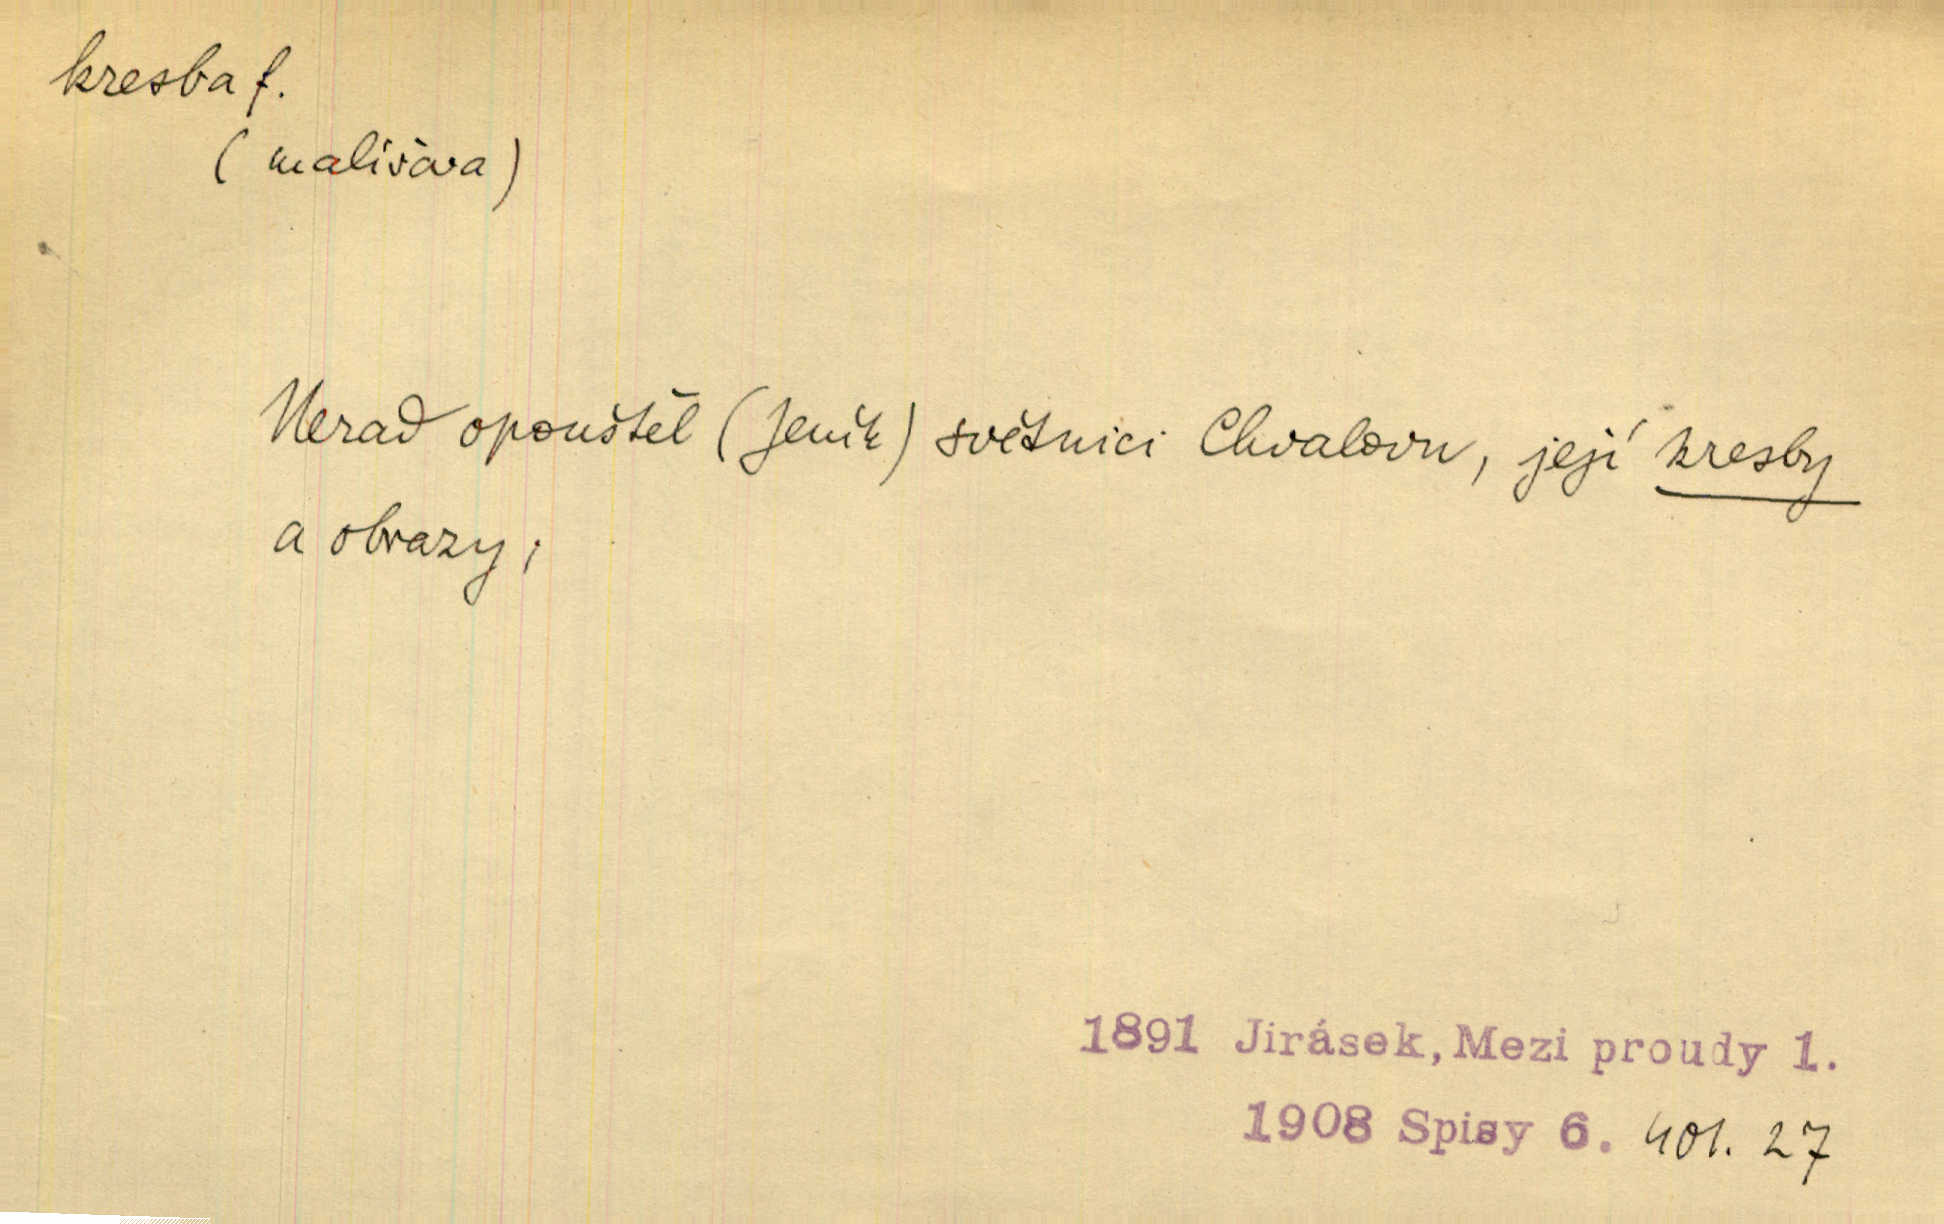 kresba f.
(malířova)
Nerad opouštěl (Jeník) světnici Chvalovu, její kresby
a obrazy;
1891 Jirásek, Mezi proudy 1.
1908 Spisy 6. 401. 27